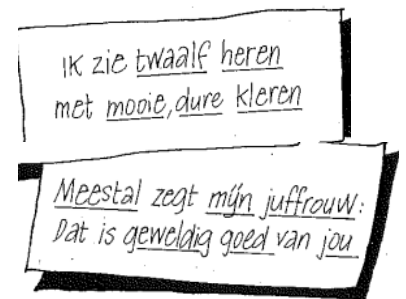 Ik zie twaalf heren
met mooie, dure kleren
Meestal zegt mijn juffrouw:
Dat is geweldig goed van jou